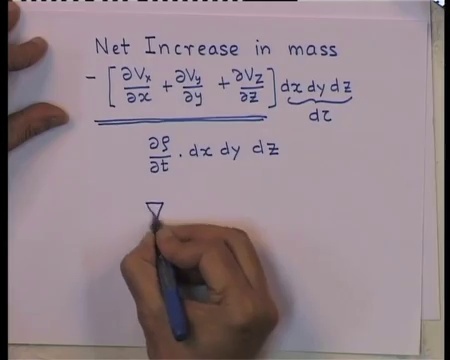 Net Increase in mass
- [ ∂Vx/∂x + ∂Vy/∂y + ∂Vz/∂z ] dx dy dz
dτ
∂ρ/∂t . dx dy dz
∇